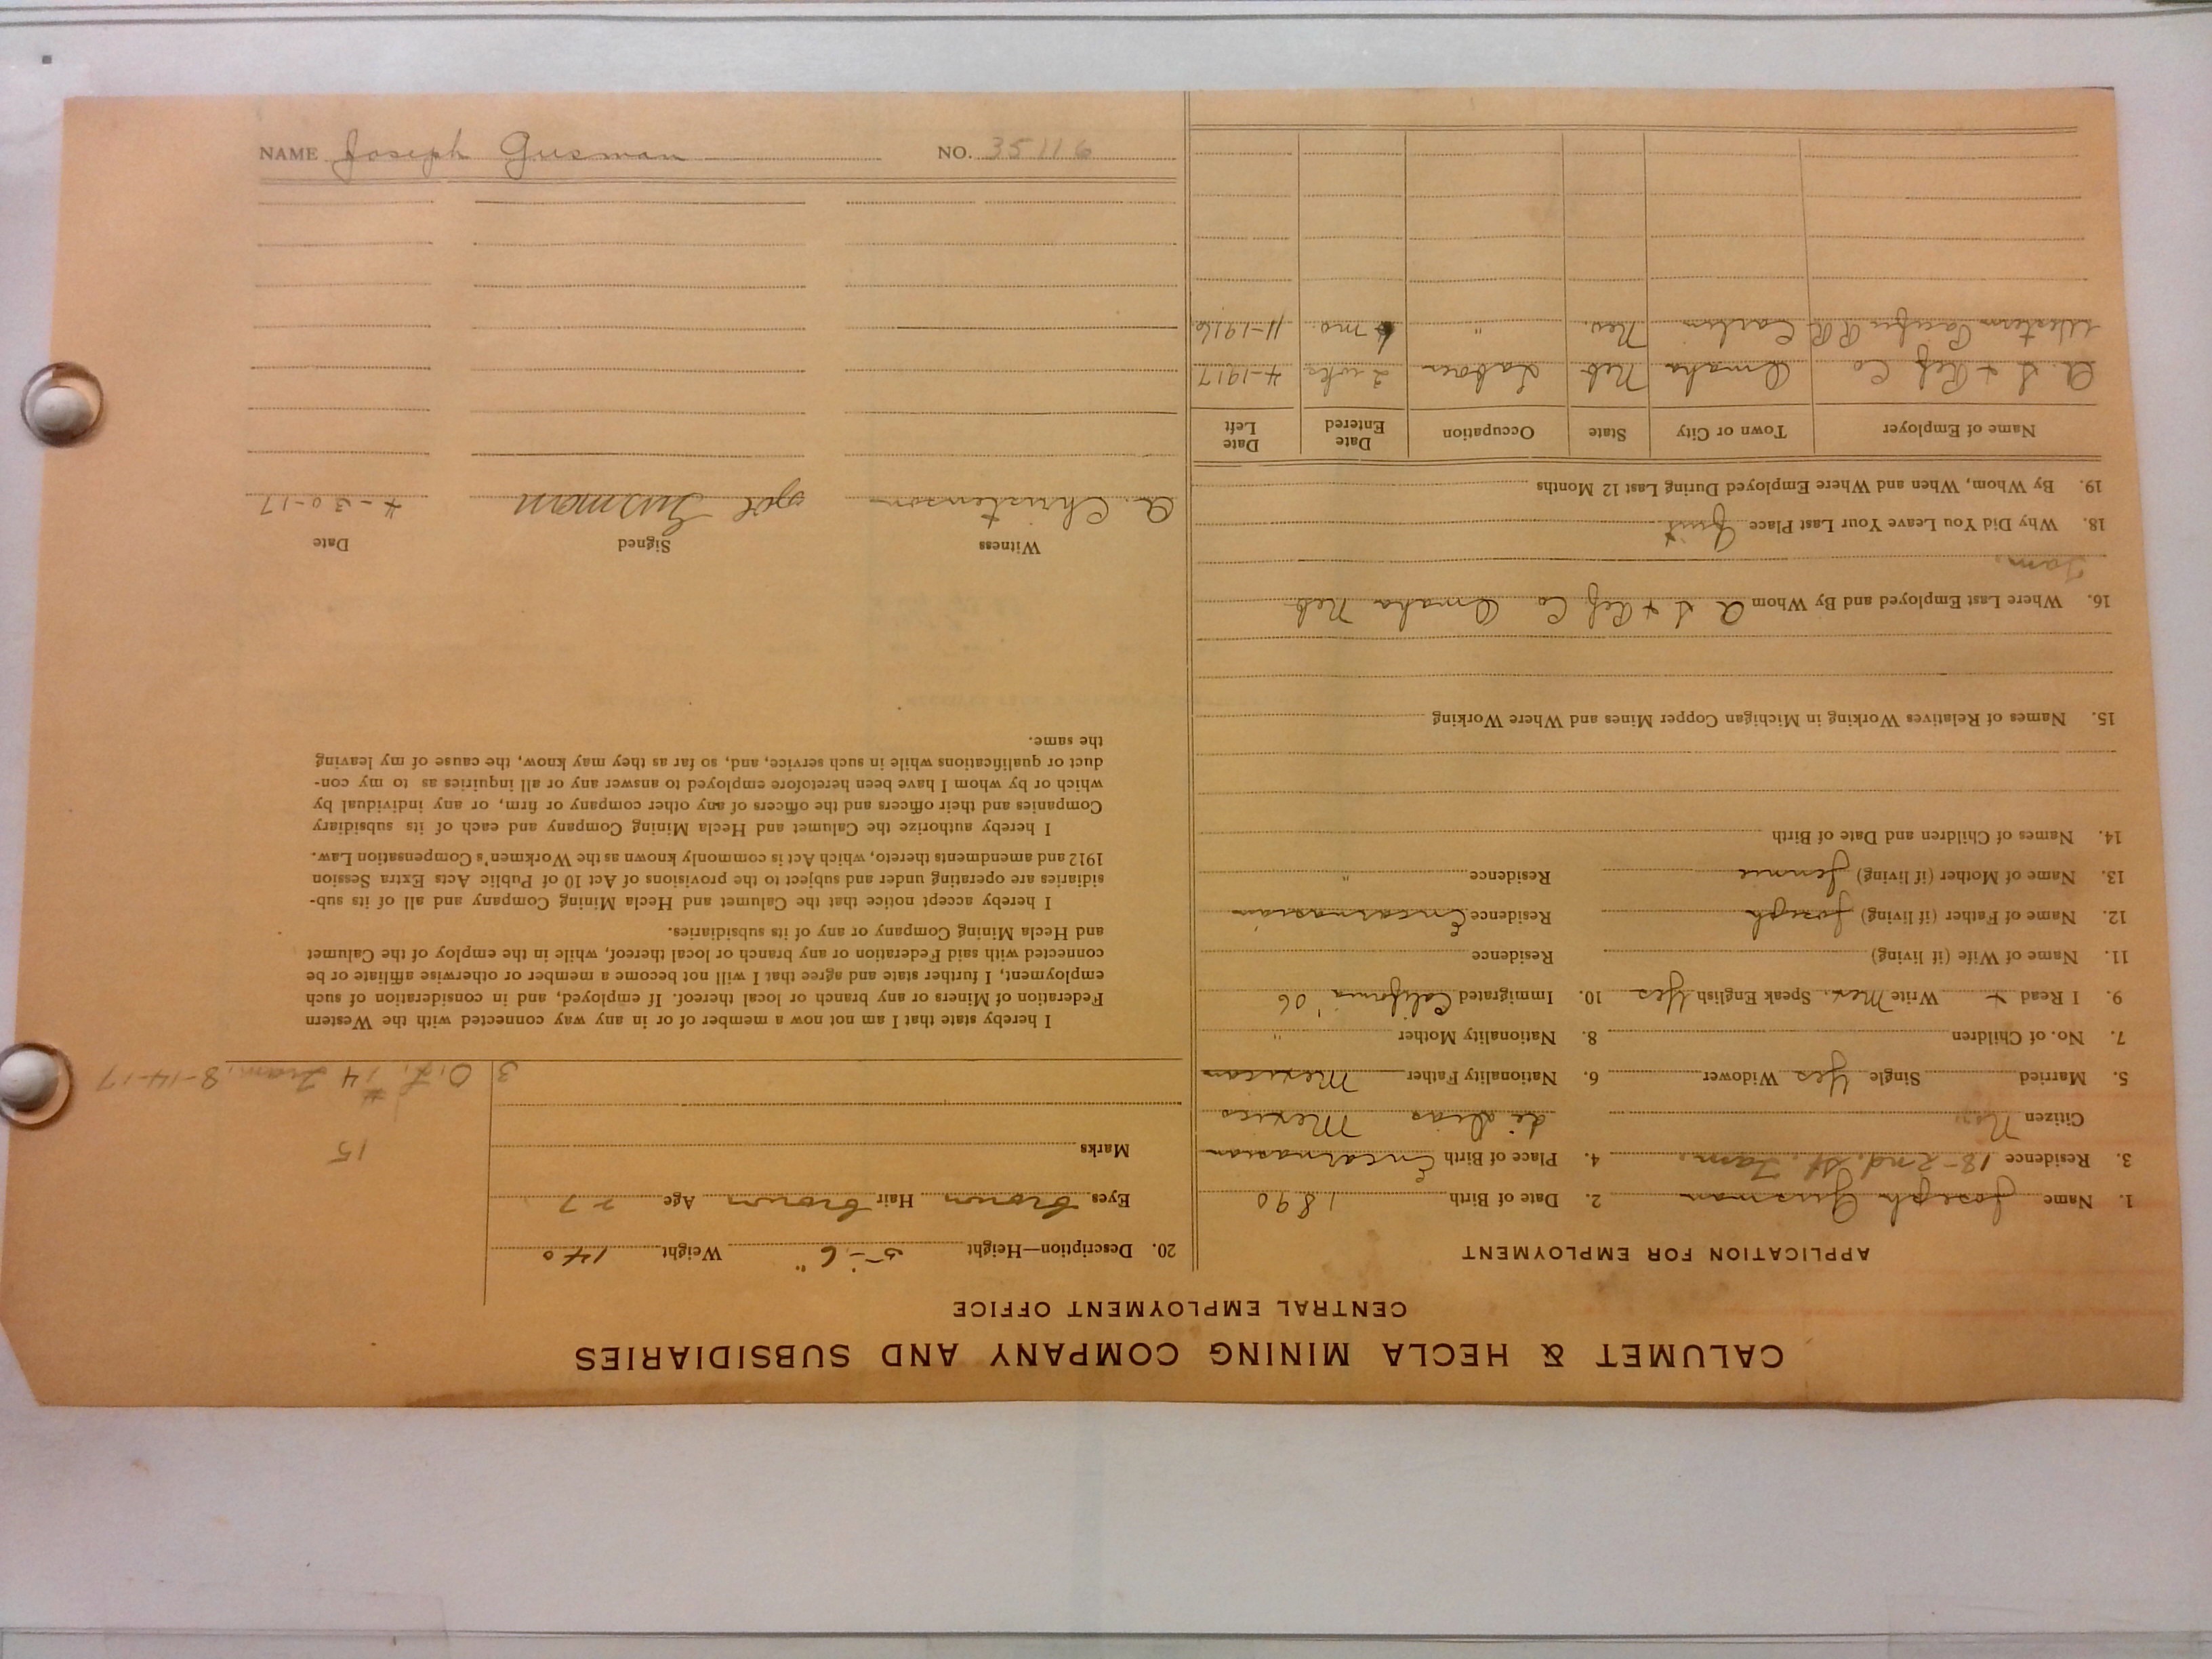 CALUMET & HECLA MINING COMPANY AND SUBSIDIARIES
CENTRAL EMPLOYMENT OFFICE
APPLICATION FOR EMPLOYMENT
1. Name Joseph Gusman 2. Date of Birth 1890
3. Residence 18-2nd. St. Tam. 4. Place of Birth Encarnasion
Citizen No de Dias Mexico
5. Married Single Yes Widower 6. Nationality Father Mexican
7. No. of Children 8. Nationality Mother "
9. I Read + Write Mex. Speak English Yes 10. Immigrated California '06
11. Name of Wife (if living) Residence
12. Name of Father (if living) Joseph Residence Encarnasion
13. Name of Mother (if living) Jennie Residence "
14. Names of Children and Date of Birth
15. Names of Relatives Working in Michigan Copper Mines and Where Working
16. Where Last Employed and By Whom A S + Ref Co Omaha Neb
Tam.
18. Why Did You Leave Your Last Place Quit
19. By Whom, When and Where Employed During Last 12 Months
Name of Employer Town or City State Occupation Date Entered Date Left
A. S + Ref Co Omaha Neb Labor 2 wks 4-1917
Western Pacific RR Carlin Nev. " 6 mo. 11-1916
20. Description—Height 5-6" Weight 140
Eyes brown Hair brown Age 27
Marks
15
3 O.L. #14 Tram. 8-14-17
I hereby state that I am not now a member of or in any way connected with the Western
Federation of Miners or any branch or local thereof. If employed, and in consideration of such
employment, I further state and agree that I will not become a member or otherwise affiliate or be
connected with said Federation or any branch or local thereof, while in the employ of the Calumet
and Hecla Mining Company or any of its subsidiaries.
I hereby accept notice that the Calumet and Hecla Mining Company and all of its sub-
sidiaries are operating under and subject to the provisions of Act 10 of Public Acts Extra Session
1912 and amendments thereto, which Act is commonly known as the Workmen's Compensation Law.
I hereby authorize the Calumet and Hecla Mining Company and each of its subsidiary
Companies and their officers and the officers of any other company or firm, or any individual by
which or by whom I have been heretofore employed to answer any or all inquiries as to my con-
duct or qualifications while in such service, and, so far as they may know, the cause of my leaving
the same.
Witness Signed Date
A. Christenson Gusman 4-30-17
NAME Joseph Gusman NO. 35116